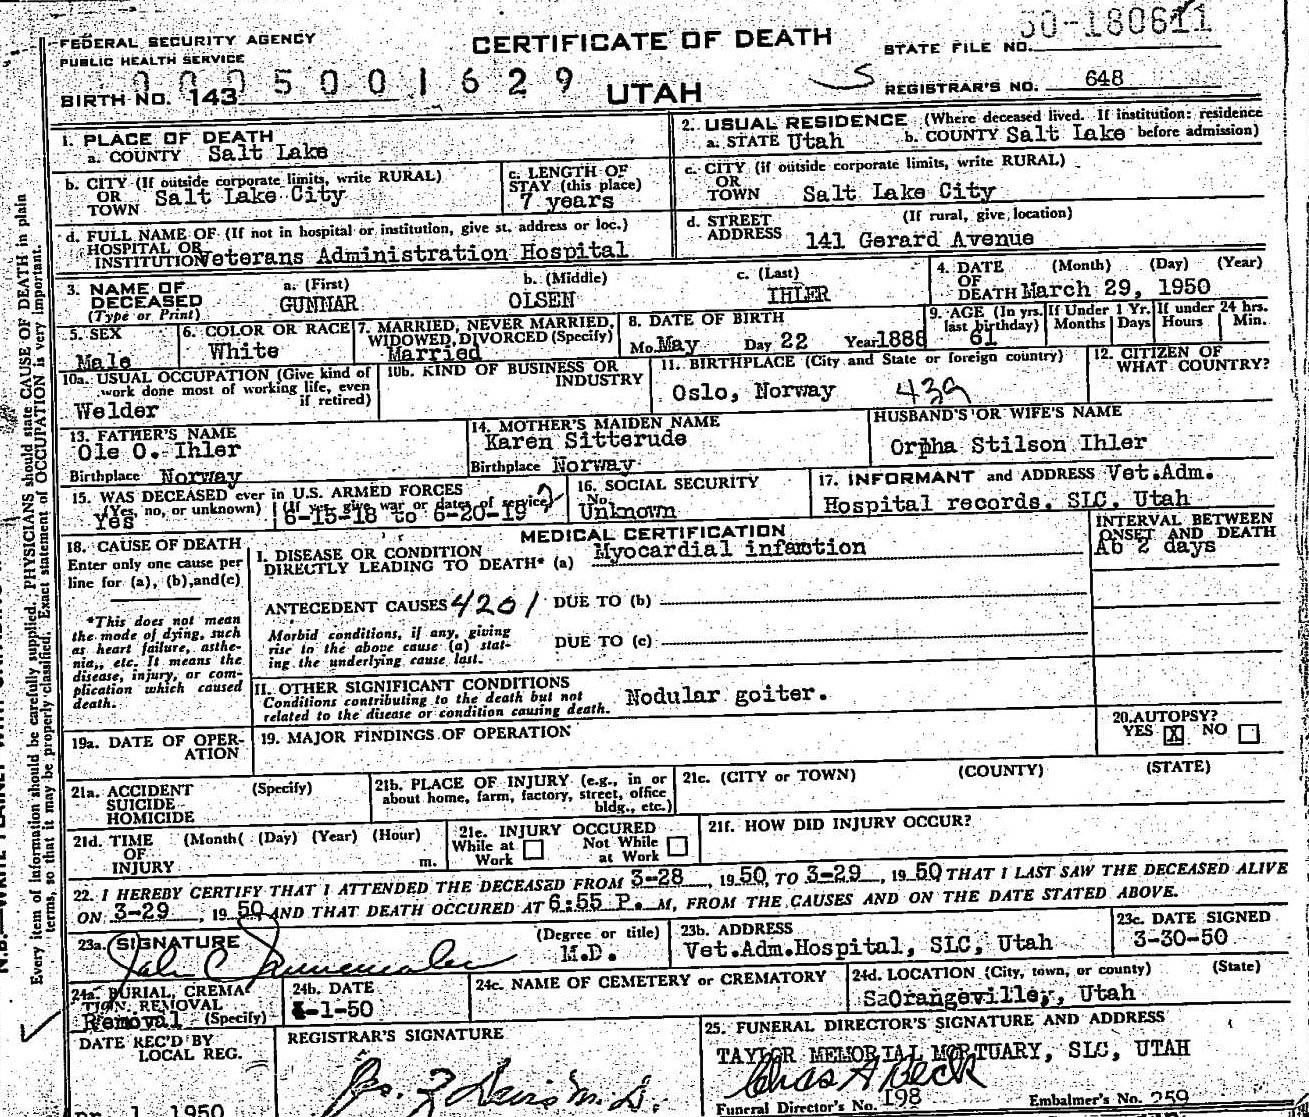 FEDERAL SECURITY AGENCY
PUBLIC HEALTH SERVICE
CERTIFICATE OF DEATH
UTAH
STATE FILE NO. 50-180611
BIRTH NO. 143
0005001629
REGISTRAR'S NO. 648
1. PLACE OF DEATH
a. COUNTY Salt Lake
2. USUAL RESIDENCE (Where deceased lived. If institution: residence before admission)
a. STATE Utah b. COUNTY Salt Lake
b. CITY (If outside corporate limits, write RURAL)
OR TOWN Salt Lake City
c. LENGTH OF STAY (this place)
7 years
c. CITY (If outside corporate limits, write RURAL)
OR TOWN Salt Lake City
d. FULL NAME OF (If not in hospital or institution, give st. address or loc.)
HOSPITAL OR INSTITUTION Veterans Administration Hospital
d. STREET ADDRESS (If rural, give location)
141 Gerard Avenue
3. NAME OF DECEASED (Type or Print)
a. (First) b. (Middle) c. (Last)
GUNNAR OLSEN IHLER
4. DATE OF DEATH (Month) (Day) (Year)
March 29, 1950
5. SEX
Male
6. COLOR OR RACE
White
7. MARRIED, NEVER MARRIED, WIDOWED, DIVORCED (Specify)
Married
8. DATE OF BIRTH
Mo. May Day 22 Year 1888
9. AGE (In yrs. last birthday)
61
If Under 1 Yr. Months Days
If under 24 hrs. Hours Min.
10a. USUAL OCCUPATION (Give kind of work done most of working life, even if retired)
Welder
10b. KIND OF BUSINESS OR INDUSTRY
11. BIRTHPLACE (City and State or foreign country)
Oslo, Norway 439
12. CITIZEN OF WHAT COUNTRY?
13. FATHER'S NAME
Ole O. Ihler
Birthplace Norway
14. MOTHER'S MAIDEN NAME
Karen Sitterude
Birthplace Norway
HUSBAND'S OR WIFE'S NAME
Orpha Stilson Ihler
15. WAS DECEASED ever in U.S. ARMED FORCES
(Yes, no, or unknown) (If yes, give war or dates of service)
Yes 6-15-18 to 6-20-19
16. SOCIAL SECURITY No.
Unknown
17. INFORMANT and ADDRESS Vet.Adm.
Hospital records, SLC, Utah
MEDICAL CERTIFICATION
INTERVAL BETWEEN ONSET AND DEATH
18. CAUSE OF DEATH
Enter only one cause per line for (a), (b), and (c)
I. DISEASE OR CONDITION DIRECTLY LEADING TO DEATH* (a) Myocardial infarction
Ab 2 days
ANTECEDENT CAUSES 4201 DUE TO (b)
Morbid conditions, if any, giving rise to the above cause (a) stating the underlying cause last.
DUE TO (c)
*This does not mean the mode of dying, such as heart failure, asthenia, etc. It means the disease, injury, or complication which caused death.
II. OTHER SIGNIFICANT CONDITIONS
Conditions contributing to the death but not related to the disease or condition causing death.
Nodular goiter.
19a. DATE OF OPERATION
19. MAJOR FINDINGS OF OPERATION
20. AUTOPSY?
YES X NO
21a. ACCIDENT SUICIDE HOMICIDE (Specify)
21b. PLACE OF INJURY (e.g., in or about home, farm, factory, street, office bldg., etc.)
21c. (CITY or TOWN) (COUNTY) (STATE)
21d. TIME OF INJURY (Month( (Day) (Year) (Hour) m.
21e. INJURY OCCURED
While at Work Not While at Work
21f. HOW DID INJURY OCCUR?
22. I HEREBY CERTIFY THAT I ATTENDED THE DECEASED FROM 3-28, 1950, TO 3-29, 1950 THAT I LAST SAW THE DECEASED ALIVE
ON 3-29, 1950 AND THAT DEATH OCCURED AT 6:55 P. M, FROM THE CAUSES AND ON THE DATE STATED ABOVE.
23a. SIGNATURE (Degree or title)
John C M.D.
23b. ADDRESS
Vet.Adm.Hospital, SLC, Utah
23c. DATE SIGNED
3-30-50
24a. BURIAL, CREMATION, REMOVAL (Specify)
Removal
24b. DATE
4-1-50
24c. NAME OF CEMETERY or CREMATORY
24d. LOCATION (City, town, or county) (State)
Orangeville, Utah
DATE REC'D BY LOCAL REG.
1 1950
REGISTRAR'S SIGNATURE
M.D.
25. FUNERAL DIRECTOR'S SIGNATURE AND ADDRESS
TAYLOR MEMORIAL MORTUARY, SLC, UTAH
Chas A Beck
Funeral Director's No. 198 Embalmer's No. 259
Every item of information should be carefully supplied. PHYSICIANS should state CAUSE OF DEATH in plain
terms, so that it may be properly classified. Exact statement of OCCUPATION is very important.